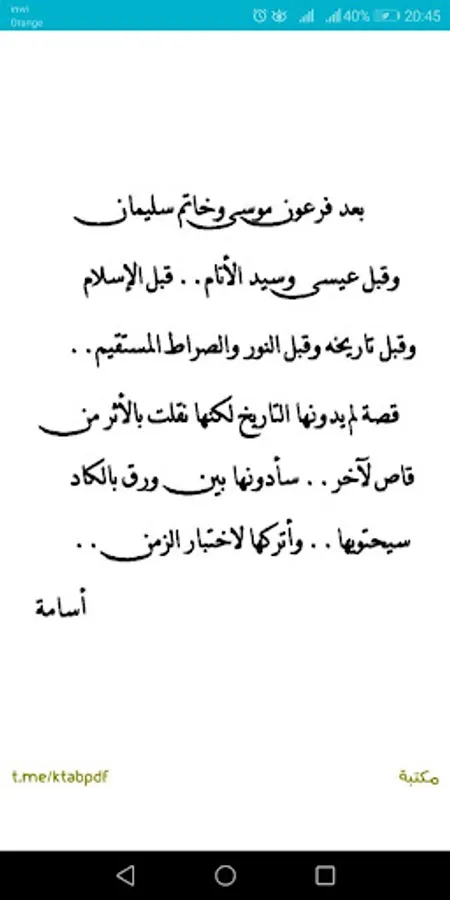 inwi
Orange
40%
20:45
بعد فرعون موسى وخاتم سليمان
وقبل عيسى وسيد الأنام . . قبل الإسلام
وقبل تاريخه وقبل النور والصراط المستقيم . .
قصة لم يدونها التاريخ لكنها نقلت بالأثر من
قاص لآخر . . سأدونها بين ورق بالكاد
سيحتويها . . وأتركها لاختبار الزمن . .
أسامة
t.me/ktabpdf
مكتبة